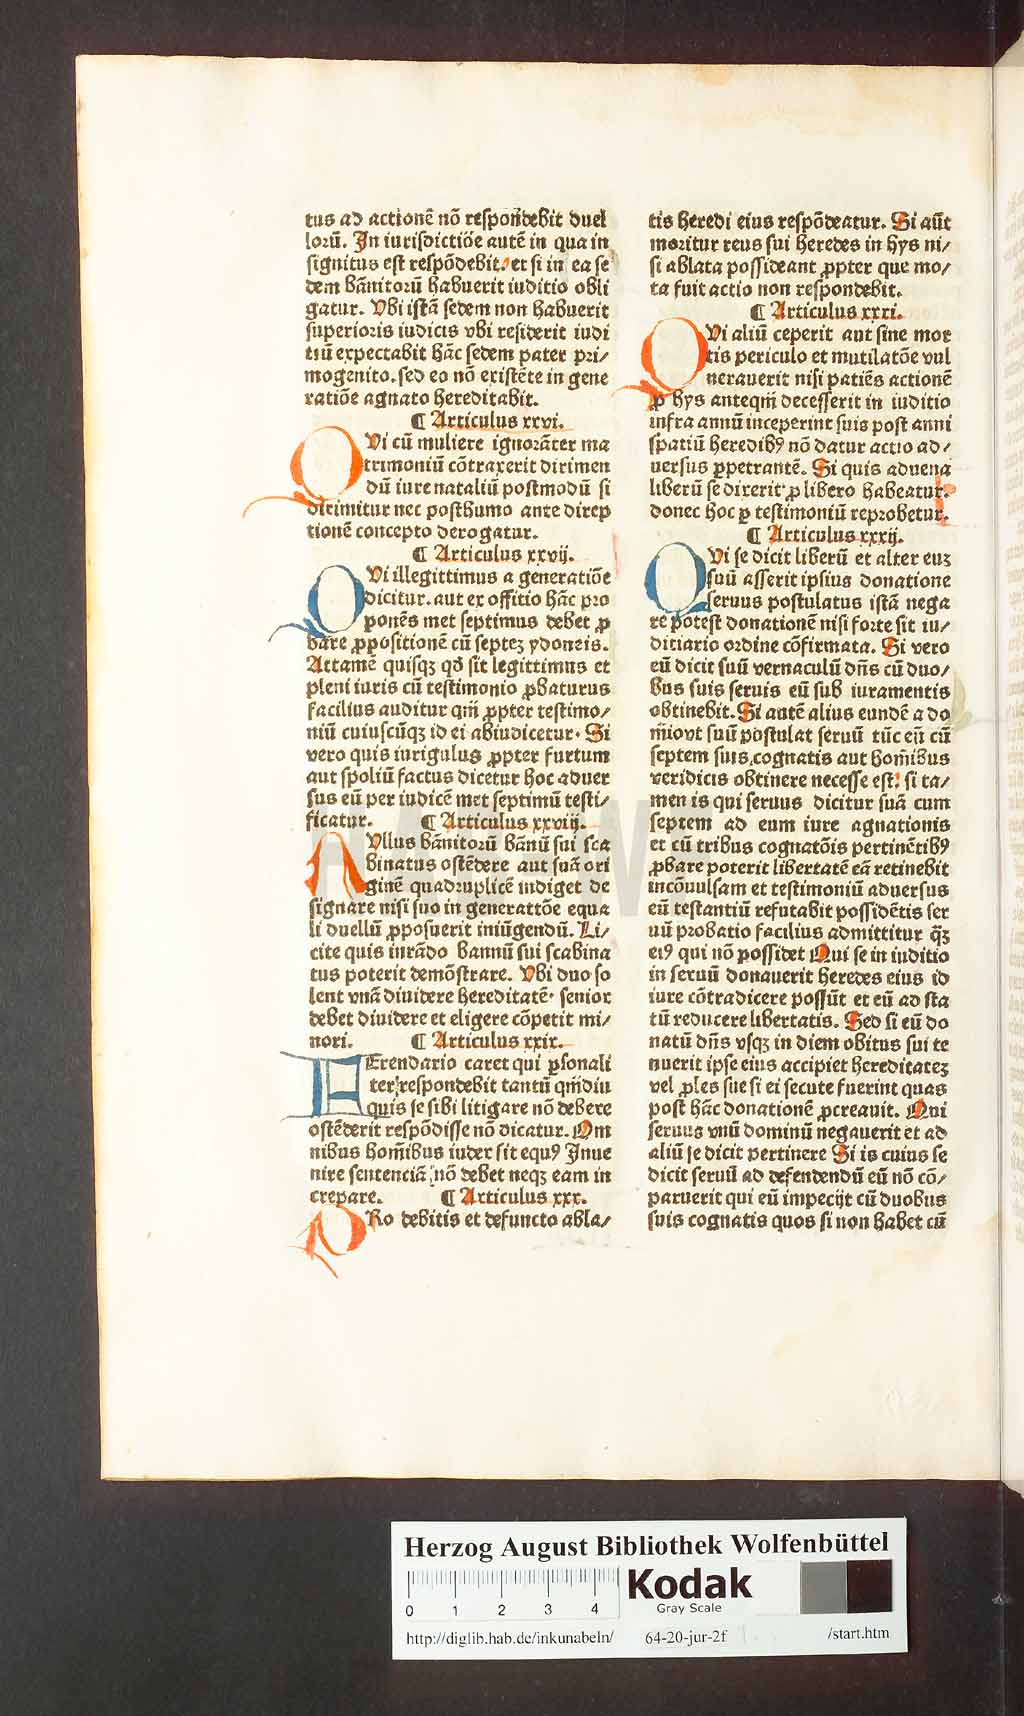 tus ad actionē nō respondebit duel
lorū. In iurisdictiōe autē in qua in
signitus est respōdebit. et si in ea se
dem bānitorū habuerit iuditio obli
gatur. Vbi istā sedem non habuerit
superioris iudicis vbi residerit iudi
tiū expectabit hāc sedem pater pri/
mogenito. sed eo nō existēte in gene
ratiōe agnato hereditabit.
¶ Articulus xxvi.
QVi cū muliere ignorāter ma
trimoniū cōtraxerit dirimen
dū iure nataliū postmodū si
dirimitur nec posthumo ante direp
tionē concepto derogatur.
¶ Articulus xxvij.
QVi illegittimus a generatiōe
dicitur. aut ex offitio hāc pro
ponēs met septimus debet ꝑ
bare ꝓpositionē cū septeꝫ ydoneis.
Attamē quisqꝫ qđ sit legittimus et
pleni iuris cū testimonio ꝓbaturus
facilius auditur qm̄ ꝓpter testimo/
niū cuiuscūqꝫ id ei abiudicetur. Si
vero quis iurigulus ꝓpter furtum
aut spoliū factus dicetur hoc aduer
sus eū per iudicē met septimū testi/
ficatur. ¶ Articulus xxviij.
NVllus bānitorū bānū sui sca
binatus ostēdere aut suā ori
ginē quadruplicē indiget de
signare nisi suo in generattōe equa
li duellū ꝓposuerit iniūgendū. Li/
cite quis iurādo bannū sui scabina
tus poterit demōstrare. Vbi duo so
lent vnā diuidere hereditatē. senior
debet diuidere et eligere cōpetit mi/
nori. ¶ Articulus xxix.
FErendario caret qui ꝑsonali
ter respondebit tantū qm̄diu
quis se sibi litigare nō debere
ostēderit respōdisse nō dicatur. Om
nibus hom̄ibus iudex sit equꝰ Inue
nire sentenciā nō debet neqꝫ eam in
crepare. ¶ Articulus xxx.
PRo debitis et defuncto abla/
tis heredi eius respōdeatur. Si aūt
moritur reus sui heredes in hys ni/
si ablata possideant ꝓpter que mo/
ta fuit actio non respondebit.
¶ Articulus xxxi.
QVi aliū ceperit aut sine mor
tis periculo et mutilatōe vul
nerauerit nisi patiēs actionē
ꝓ hys anteqm̄ decesserit in iuditio
infra annū inceperint suis post anni
spatiū heredibꝰ nō datur actio ad/
uersus ꝑpetrantē. Si quis aduena
liberū se dixerit ꝓ libero habeatur.
donec hoc ꝑ testimoniū reprobetur.
¶ Articulus xxxij.
QVi se dicit liberū et alter euꝫ
suū asserit ipsius donatione
seruus postulatus istā nega
re potest donationē nisi forte sit iu/
ditiario ordine cōfirmata. Si vero
eū dicit suū vernaculū dn̄s cū duo/
bus suis seruis eū sub iuramentis
obtinebit. Si autē alius eundē a do
mīovt suū postulat seruū tūc eū cū
septem suis cognatis aut hom̄ibus
veridicis obtinere necesse est: si ta/
men is qui seruus dicitur suā cum
septem ad eum iure agnationis
et cū tribus cognatōis pertinētibꝰ
ꝓbare poterit libertatē eā retinebit
incōuulsam et testimoniū aduersus
eū testantiū refutabit possidētis ser
uū probatio facilius admittitur qꝫ̄
eiꝰ qui nō possidet Qui se in iuditio
in seruū donauerit heredes eius id
iure cōtradicere possūt et eū ad sta
tū reducere libertatis. Sed si eū do
natū dn̄s vsqꝫ in diem obitus sui te
nuerit ipse eius accipiet hereditateꝫ
vel ꝓles sue si ei secute fuerint quas
post hāc donationē ꝓcreauit. Qui
seruus vnū dominū negauerit et ad
aliū se dicit pertinere Si is cuius se
dicit seruū ad defendendū eū nō cō/
paruerit qui eū impecijt cū duobus
suis cognatis quos si non habet cū
HAB-W
Herzog August Bibliothek Wolfenbüttel
0 1 2 3 4
Kodak
Gray Scale
http://diglib.hab.de/inkunabeln/ 64-20-jur-2f /start.htm